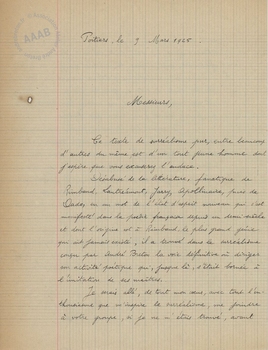 AAAB
Poitiers, le 9 Mars 1925.
Messieurs,
Ce texte de surréalisme pur, entre beaucoup
d'autres du même est d'un tout jeune homme dont
j'espère que vous excuserez l'audace.
de la littérature, fanatique de
Rimbaud, Lautréamont, Jarry, Apollinaire, puis de
Dada, en un mot de l'état d'esprit nouveau qui s'est
manifesté dans la poésie française depuis un demi-siècle
et dont l'origine est à Rimbaud le plus grand génie
qui ait jamais existé, il a trouvé dans le surréalisme
conçu par André Breton la voie définitive où diriger
son activité poétique qui, jusque là, s'était bornée à
l'imitation de ses maîtres.
Je serais allé, de tout mon cœur, avec tout l'en-
thousiasme que m'inspire le surréalisme, me joindre
à votre groupe, si je ne m'étais trouvé, avant